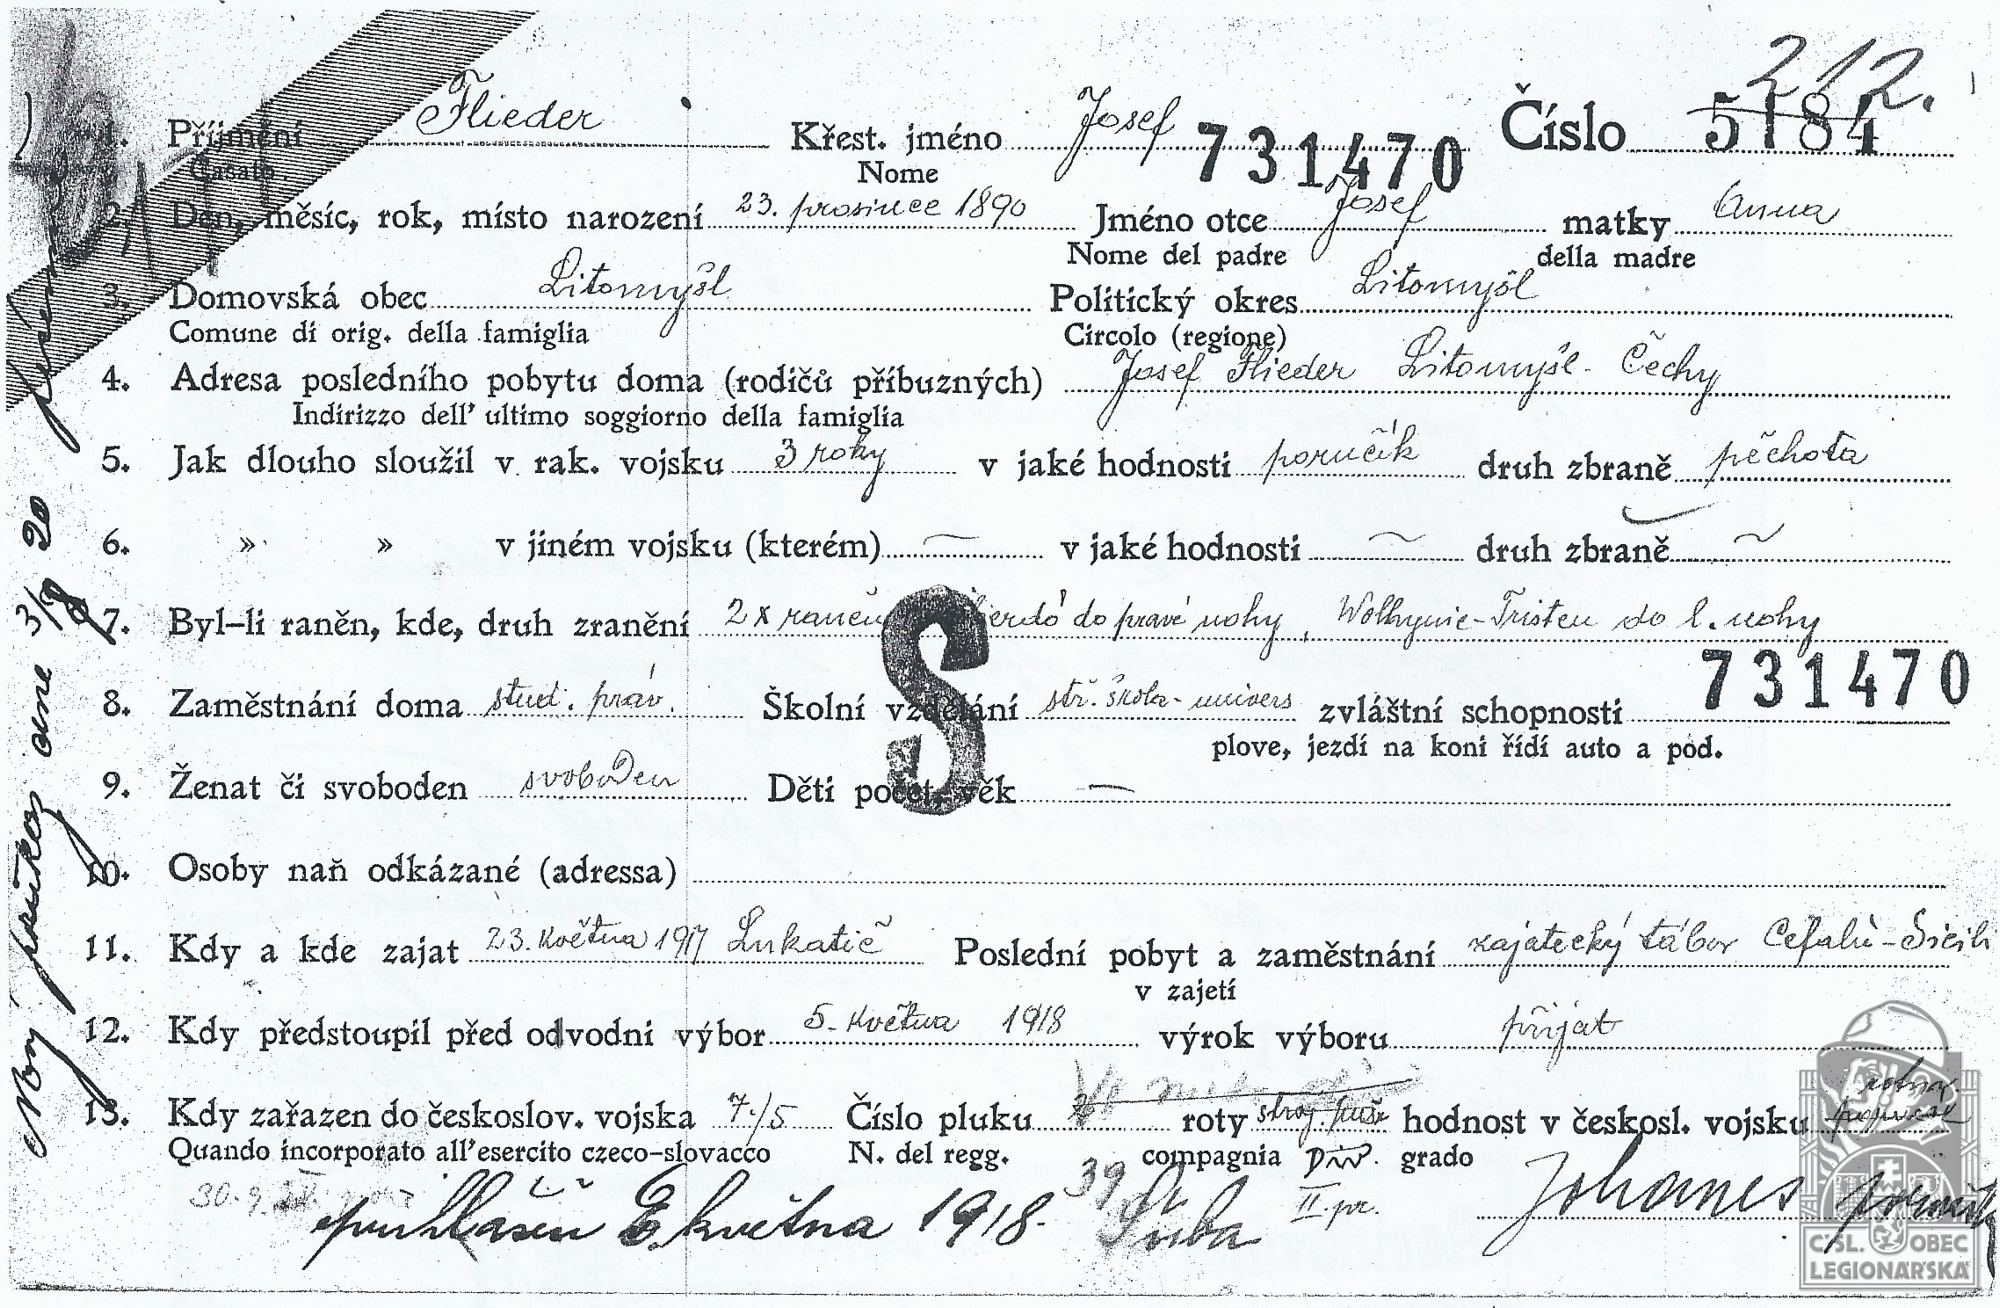 212.
1. Příjmení Flieder Křest. jméno Josef 731470 Číslo 5184
Casato Nome
2. Den, měsíc, rok, místo narození 23. prosince 1890 Jméno otce Josef matky Anna
Nome del padre della madre
3. Domovská obec Litomyšl Politický okres Litomyšl
Comune di orig. della famiglia Circolo (regione)
4. Adresa posledního pobytu doma (rodičů příbuzných) Josef Flieder Litomyšl - Čechy
Indirizzo dell' ultimo soggiorno della famiglia
5. Jak dlouho sloužil v rak. vojsku 3 roky v jaké hodnosti poručík druh zbraně pěchota
6. » » v jiném vojsku (kterém) ~ v jaké hodnosti ~ druh zbraně ~
7. Byl-li raněn, kde, druh zranění 2 x raněn do pravé nohy, Wolhynie-Tristen do l. nohy
S
731470
8. Zaměstnání doma stud. práv. Školní vzdělání stř. škola - univers zvláštní schopnosti
plove, jezdí na koni řídí auto a pod.
9. Ženat či svoboden svoboden Děti počet, věk —
10. Osoby naň odkázané (adressa)
11. Kdy a kde zajat 23. května 1917 Lukatič Poslední pobyt a zaměstnání zajatecký tábor Cefalù - Sicili
v zajetí
12. Kdy předstoupil před odvodni výbor 5. května 1918 výrok výboru přijat
13. Kdy zařazen do českoslov. vojska 7./5 Číslo pluku roty stroj. pušk hodnost v českosl. vojsku
Quando incorporato all'esercito czeco-slovacco N. del regg. 39 compagnia grado
30.9. II. pr.
května 1918. Johanes
ČSL. OBEC
LEGIONÁŘSKÁ
dne 3/8 20